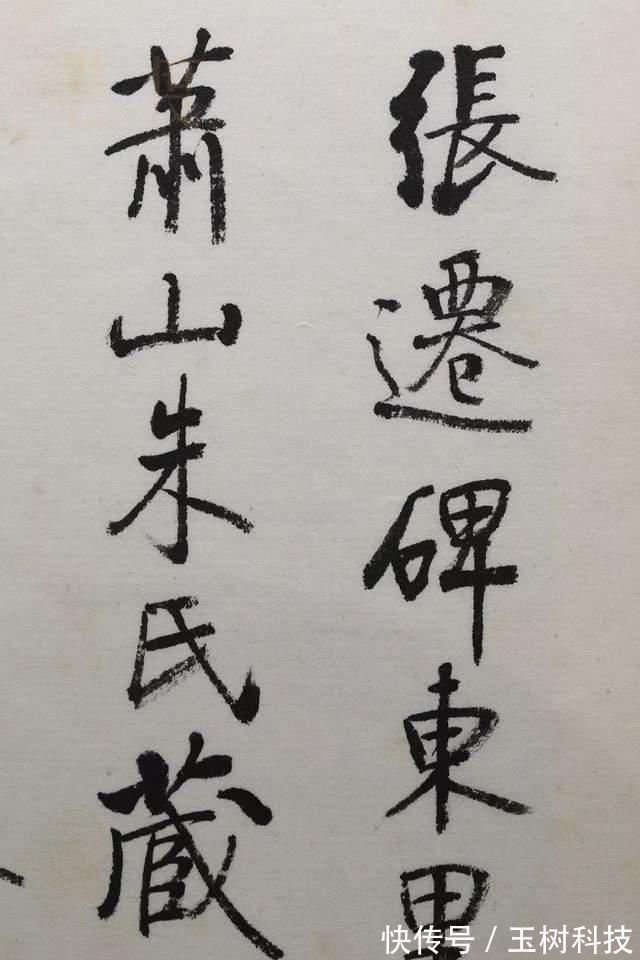 張遷碑東里
蕭山朱氏蔵
快传号 / 玉树科技